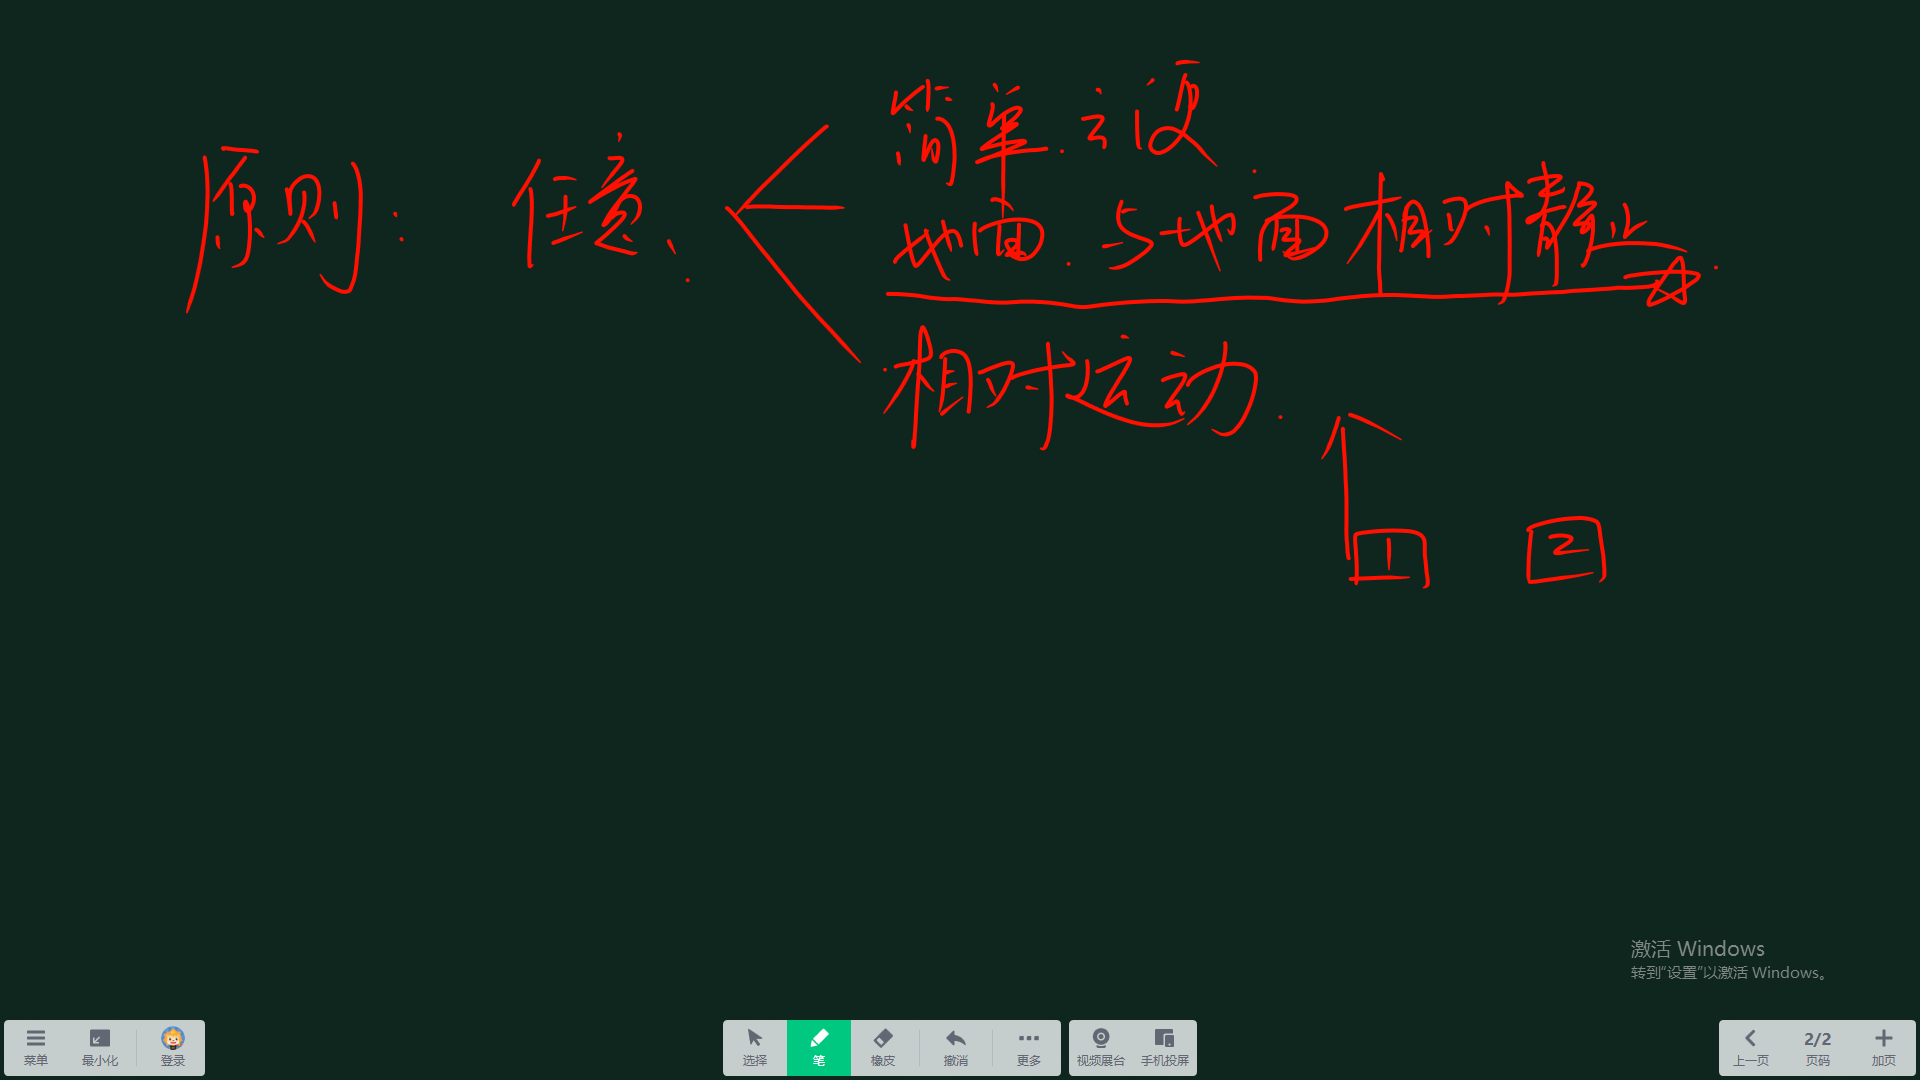 原则: 任意.
简单.方便.
地面.与地面相对静止.
相对运动.
1 2
激活 Windows
转到“设置”以激活 Windows。
菜单 最小化 登录 选择 笔 橡皮 撤消 更多 视频展台 手机投屏 上一页 2/2 页码 加页